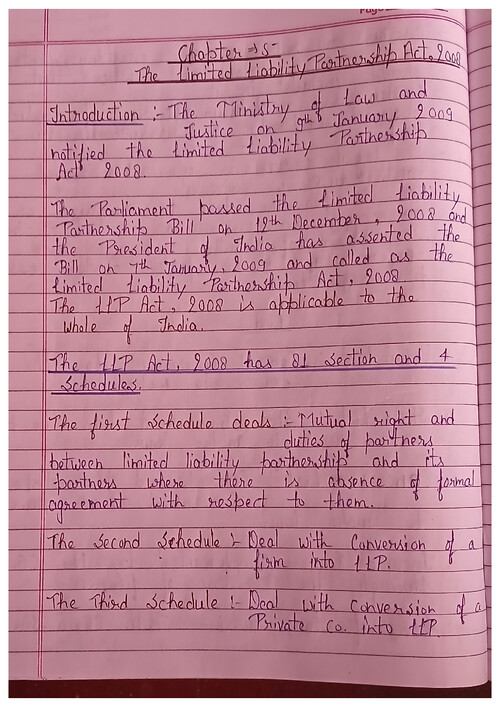 Page
Chapter → 5
The Limited Liability Partnership Act, 2008
Introduction :- The Ministry of Law and
Justice on 9th January 2009
notified the Limited Liability Partnership
Act 2008.
The Parliament passed the Limited Liability
Partnership Bill on 12th December, 2008 and
the President of India has assented the
Bill on 7th January, 2009 and called as the
Limited Liability Partnership Act, 2008
The LLP Act, 2008 is applicable to the
whole of India.
The LLP Act, 2008 has 81 Section and 4
Schedules.
The first Schedule deals :- Mutual right and
duties of partners
between limited liability partnership and its
partners where there is absence of formal
agreement with respect to them.
The Second Schedule :- Deal with Conversion of a
firm into LLP.
The Third Schedule :- Deal with Conversion of a
Private Co. into LLP.